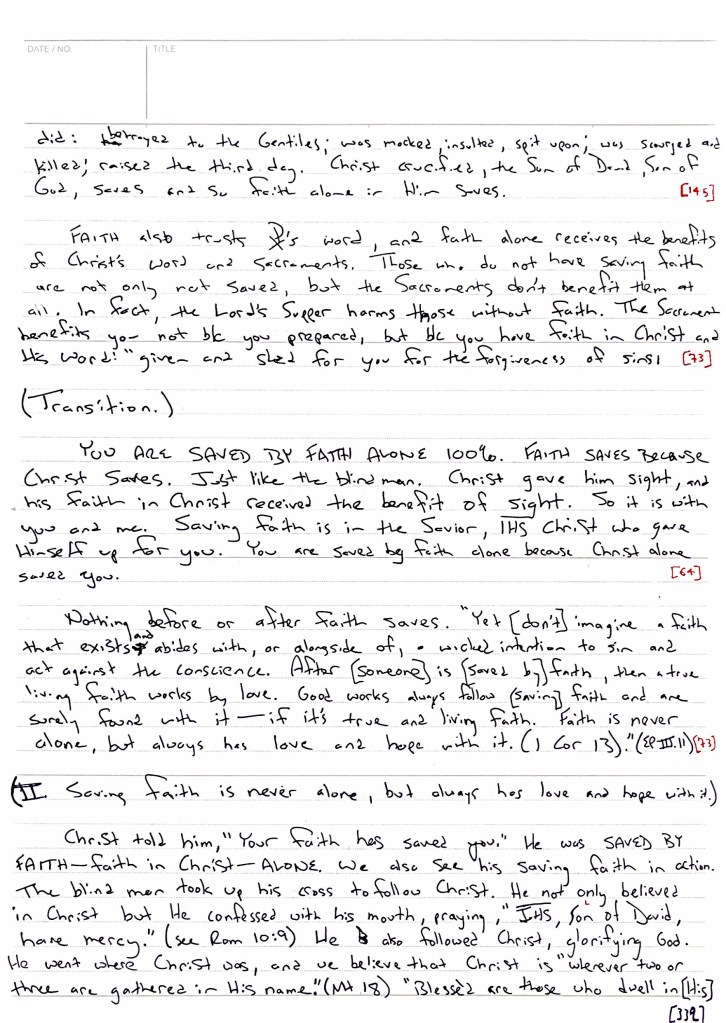 DATE / NO. TITLE
did: betrayed to the Gentiles; was mocked, insulted, spit upon; was scourged and
killed; raised the third day. Christ crucified, the Son of David, Son of
God, saves and so faith alone in Him saves. [145]
FAITH also trusts 's word, and faith alone receives the benefits
of Christ's word and sacraments. Those who do not have saving faith
are not only not saved, but the Sacraments don't benefit them at
all. In fact, the Lord's Supper harms those without faith. The Sacrament
benefits you not b/c you prepared, but b/c you have faith in Christ and
His word: "given and shed for you for the forgiveness of sins! [73]
(Transition.)
YOU ARE SAVED BY FAITH ALONE 100%. FAITH SAVES BECAUSE
Christ Saves. Just like the blind man. Christ gave him sight, and
his faith in Christ received the benefit of sight. So it is with
you and me. Saving faith is in the Savior, IHS Christ who gave
Himself up for you. You are saved by faith alone because Christ alone
saved you. [64]
Nothing before or after faith saves. "Yet [don't] imagine a faith
that exists and abides with, or alongside of, a wicked intention to sin and
act against the conscience. After [someone] is [saved by] faith, then a true
living faith works by love. Good works always follow [saving] faith and are
surely found with it — if it's true and living faith. Faith is never
alone, but always has love and hope with it. (1 Cor 13)." (EP III.11) [73]
(II. Saving faith is never alone, but always has love and hope with it.)
Christ told him, "Your faith has saved you." He was SAVED BY
FAITH — faith in Christ — ALONE. We also see his saving faith in action.
The blind man took up his cross to follow Christ. He not only believed
in Christ but He confessed with his mouth, praying, "IHS, Son of David,
have mercy." (see Rom 10:9) He also followed Christ, glorifying God.
He went where Christ was, and we believe that Christ is "wherever two or
three are gathered in His name." (Mt 18) "Blessed are those who dwell in [His]
[339]